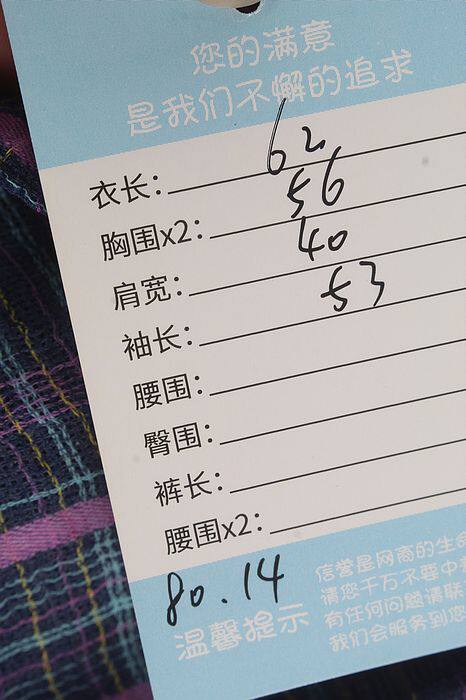 您的满意
是我们不懈的追求
衣长：62
胸围x2：56
肩宽：40
袖长：53
腰围：
臀围：
裤长：
腰围x2：
80.14
温馨提示
信誉是网商的生命
请您千万不要中
有任何问题请联
我们会服务到您